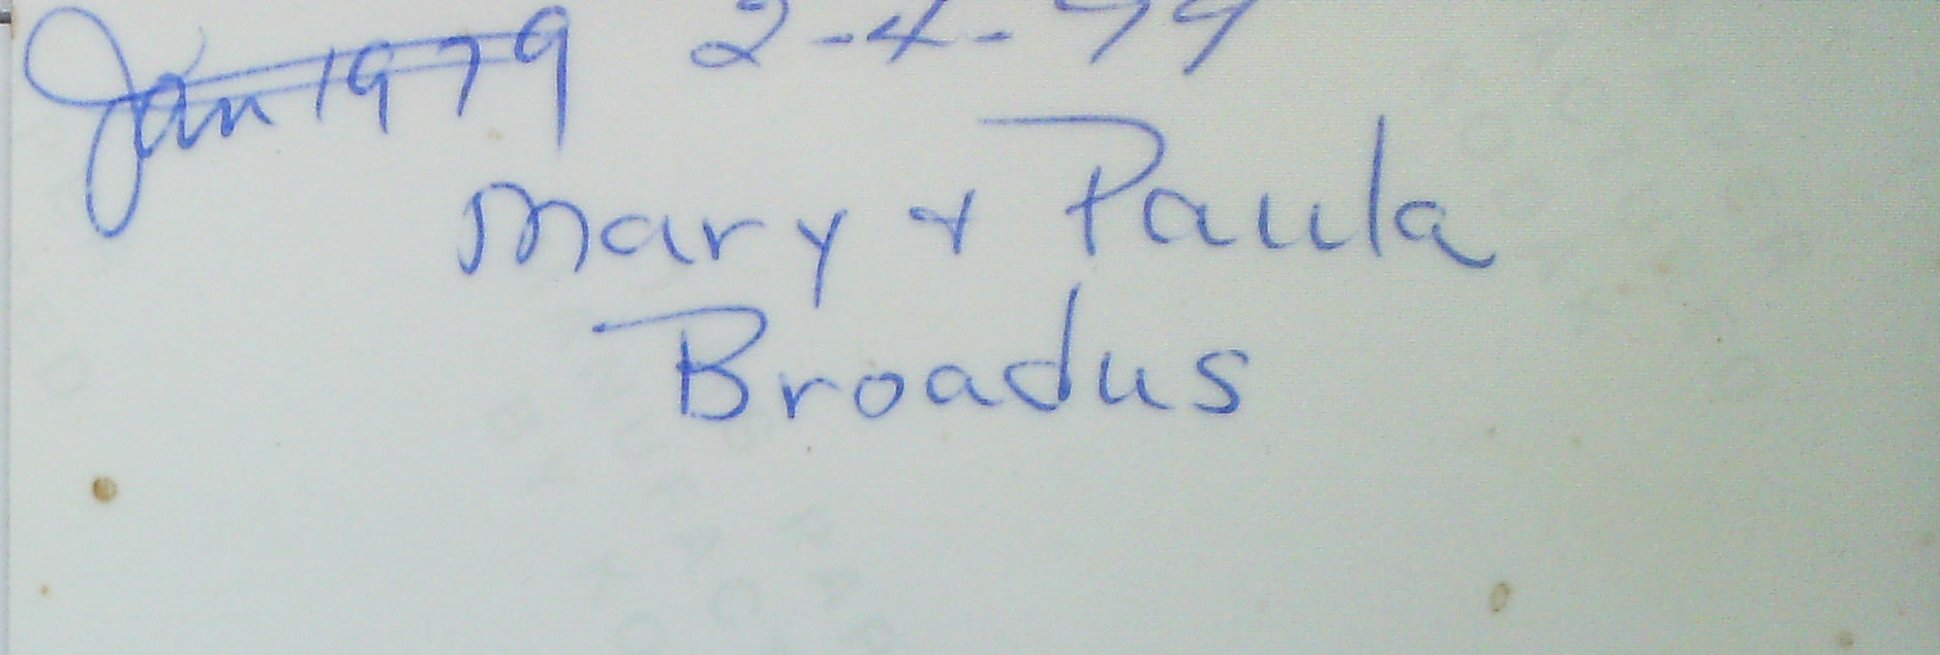 Jan 1979 2-4-79
Mary & Paula
Broadus